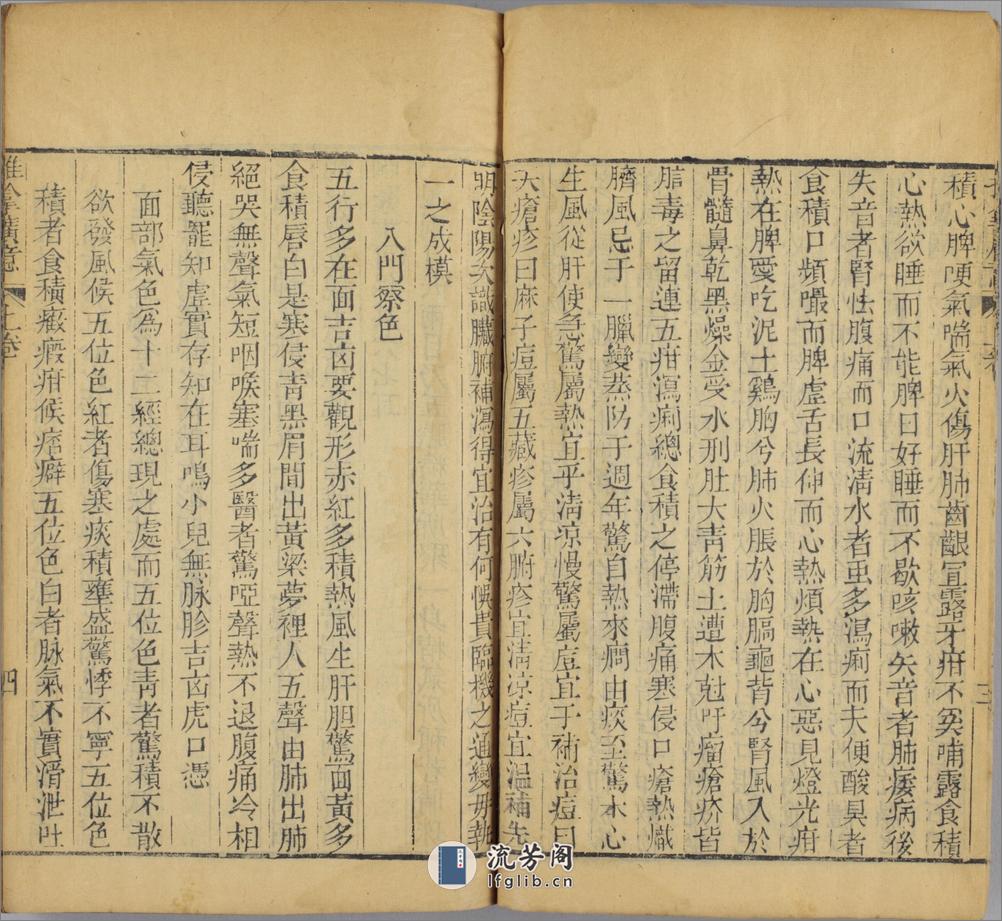 積心脾哽氣喘氣火傷肝肺齒齦宣露牙疳不奚哺露食積
心熱欲睡而不能脾日好睡而不歇咳嗽失音者肺痿病後
失音者腎怯腹痛而口流清水者虫多瀉痢而大便酸臭者
食積口頻嘬而脾虛舌長伸而心熱煩熱在心惡見燈光疳
熱在脾愛吃泥土鷄胸兮肺火脹於胸膈龜背兮腎風入於
骨髓鼻乾黑燥金受水刑肚大青筋土遭木尅吁瘤瘡疥皆
胎毒之留連五疳瀉痢總食積之停滯腹痛寒侵口瘡熱熾
臍風忌于一臘變蒸防于週年驚自熱來癇由痰至驚本心
生風從肝使急驚屬熱宜乎清凉慢驚屬虛宜于補治痘曰
天瘡疹曰麻子痘屬五藏疹屬六腑疹宜清凉痘宜溫補先
明陰陽次識臟腑補瀉得宜治有何悞貴臨機之通變毋執
一之成模
八門察色
五行多在面吉凶要觀形赤紅多積熱風生肝胆驚面黃多
食積唇白是寒侵青黑眉間出黃梁夢裡人五聲由肺出肺
絕哭無聲氣短咽喉塞喘多醫者驚啞聲熱不退腹痛冷相
侵聽罷知虛實存知在耳鳴小兒無脉胗吉凶虎口憑
面部氣色為十二經總現之處而五位色青者驚積不散
欲發風候五位色紅者傷寒痰積壅盛驚悸不寧五位色
積者食積癥瘕疳候痞癖五位色白者脉氣不實滑泄吐
推拿廣意 上卷
四
流芳阁
lfglib.cn